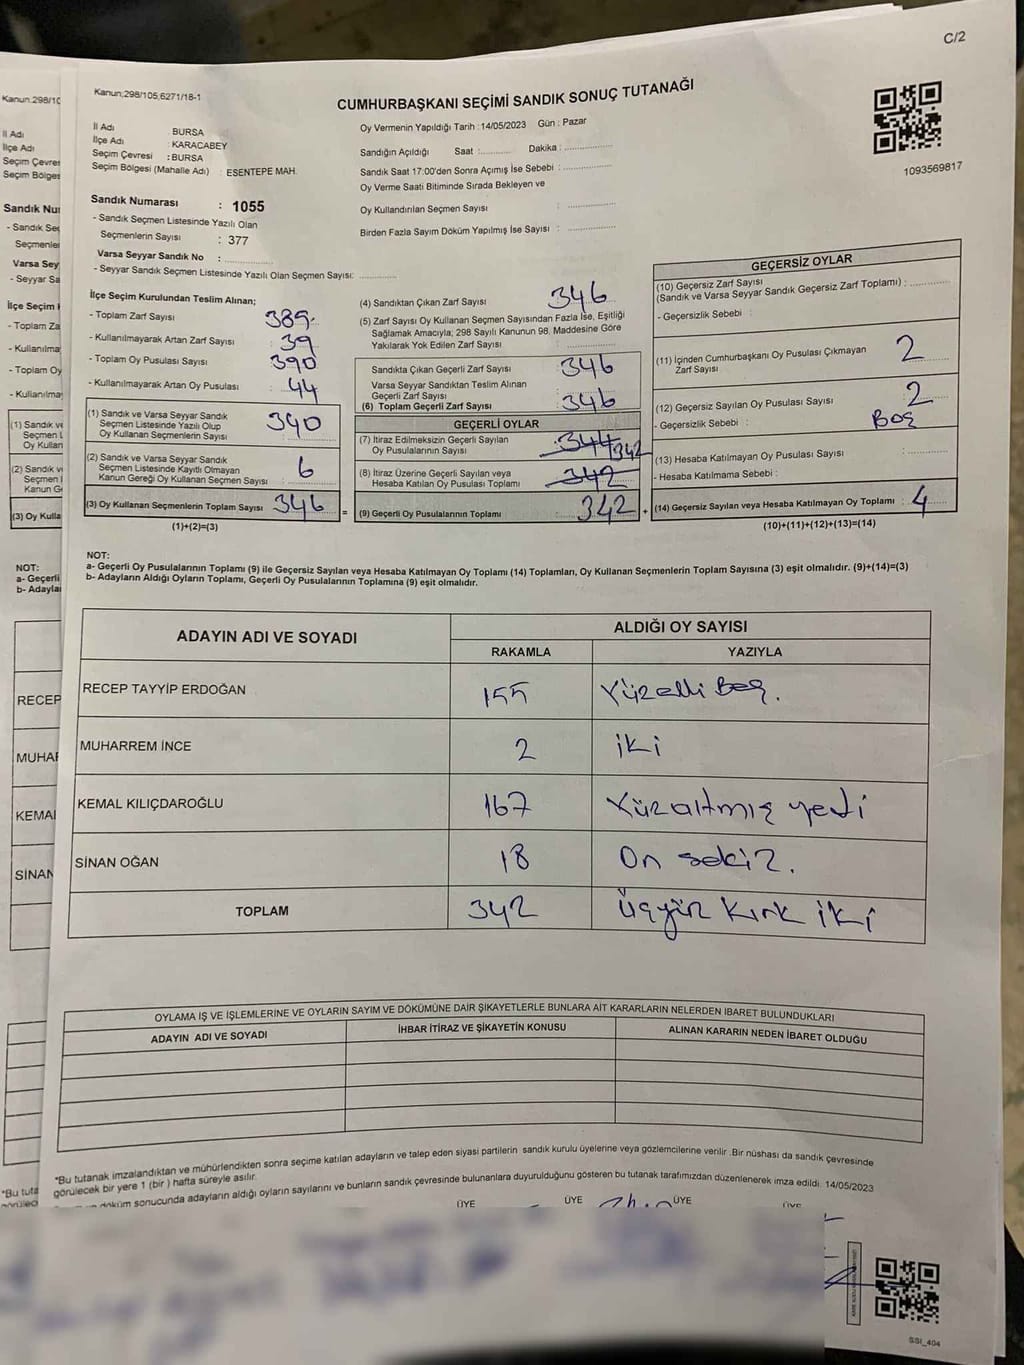 C/2
Kanun;298/105,6271/18-1
CUMHURBAŞKANI SEÇİMİ SANDIK SONUÇ TUTANAĞI
İl Adı : BURSA
İlçe Adı : KARACABEY
Seçim Çevresi : BURSA
Seçim Bölgesi (Mahalle Adı) : ESENTEPE MAH.
Oy Vermenin Yapıldığı Tarih : 14/05/2023 Gün : Pazar
Sandığın Açıldığı Saat :.......... Dakika : ................
Sandık Saat 17:00'den Sonra Açımış İse Sebebi : ................
Oy Verme Saati Bitiminde Sırada Bekleyen ve
Oy Kullandırılan Seçmen Sayısı : ................
Birden Fazla Sayım Döküm Yapılmış İse Sayısı : ................
1093569817
Sandık Numarası : 1055
- Sandık Seçmen Listesinde Yazılı Olan
Seçmenlerin Sayısı : 377
Varsa Seyyar Sandık No : ................
- Seyyar Sandık Seçmen Listesinde Yazılı Olan Seçmen Sayısı: ............
İlçe Seçim Kurulundan Teslim Alınan;
- Toplam Zarf Sayısı 389
- Kullanılmayarak Artan Zarf Sayısı : 39
- Toplam Oy Pusulası Sayısı 390
- Kullanılmayarak Artan Oy Pusulası : 44
(1) Sandık ve Varsa Seyyar Sandık
Seçmen Listesinde Yazılı Olup
Oy Kullanan Seçmenlerin Sayısı : 340
(2) Sandık ve Varsa Seyyar Sandık
Seçmen Listesinde Kayıtlı Olmayan
Kanun Gereği Oy Kullanan Seçmen Sayısı : 6
(3) Oy Kullanan Seçmenlerin Toplam Sayısı : 346 =
(1)+(2)=(3)
(4) Sandıktan Çıkan Zarf Sayısı 346
(5) Zarf Sayısı Oy Kullanan Seçmen Sayısından Fazla İse, Eşitliği
Sağlamak Amacıyla, 298 Sayılı Kanunun 98. Maddesine Göre
Yakılarak Yok Edilen Zarf Sayısı : ............
Sandıkta Çıkan Geçerli Zarf Sayısı 346
Varsa Seyyar Sandıktan Teslim Alınan
Geçerli Zarf Sayısı
(6) Toplam Geçerli Zarf Sayısı 346
GEÇERLİ OYLAR
(7) İtiraz Edilmeksizin Geçerli Sayılan
Oy Pusulalarının Sayısı : 344 342
(8) İtiraz Üzerine Geçerli Sayılan veya
Hesaba Katılan Oy Pusulaları Toplamı : 342
(9) Geçerli Oy Pusulalarının Toplamı : 342 +
GEÇERSİZ OYLAR
(10) Geçersiz Zarf Sayısı
(Sandık ve Varsa Seyyar Sandık Geçersiz Zarf Toplamı) : ............
- Geçersizlik Sebebi :
(11) İçinden Cumhurbaşkanı Oy Pusulası Çıkmayan
Zarf Sayısı 2
(12) Geçersiz Sayılan Oy Pusulası Sayısı : 2
- Geçersizlik Sebebi : Boş
(13) Hesaba Katılmayan Oy Pusulası Sayısı : ............
- Hesaba Katılmama Sebebi :
(14) Geçersiz Sayılan veya Hesaba Katılmayan Oy Toplamı : 4
(10)+(11)+(12)+(13)=(14)
NOT:
a- Geçerli Oy Pusulalarının Toplamı (9) ile Geçersiz Sayılan veya Hesaba Katılmayan Oy Toplamı (14) Toplamları, Oy Kullanan Seçmenlerin Toplam Sayısına (3) eşit olmalıdır. (9)+(14)=(3)
b- Adayların Aldığı Oyların Toplamı, Geçerli Oy Pusulalarının Toplamına (9) eşit olmalıdır.
ADAYIN ADI VE SOYADI ALDIĞI OY SAYISI
RAKAMLA YAZIYLA
RECEP TAYYİP ERDOĞAN 155 Yüzelli Beş.
MUHARREM İNCE 2 iki
KEMAL KILIÇDAROĞLU 167 Yüzaltmış yedi
SİNAN OĞAN 18 On sekiz.
TOPLAM 342 Üçyüz kırk iki
OYLAMA İŞ VE İŞLEMLERİNE VE OYLARIN SAYIM VE DÖKÜMÜNE DAİR ŞİKAYETLERLE BUNLARA AİT KARARLARIN NELERDEN İBARET BULUNDUKLARI
ADAYIN ADI VE SOYADI İHBAR İTİRAZ VE ŞİKAYETİN KONUSU ALINAN KARARIN NEDEN İBARET OLDUĞU
*Bu tutanak imzalandıktan ve mühürlendikten sonra seçime katılan adayların ve talep eden siyasi partilerin sandık kurulu üyelerine veya gözlemcilerine verilir .Bir nüshası da sandık çevresinde
görülecek bir yere 1 (bir ) hafta süreyle asılır.
döküm sonucunda adayların aldığı oyların sayılarını ve bunların sandık çevresinde bulunanlara duyurulduğunu gösteren bu tutanak tarafımızdan düzenlenerek imza edildi. 14/05/2023
ÜYE ÜYE ÜYE ÜYE
SSİ_404